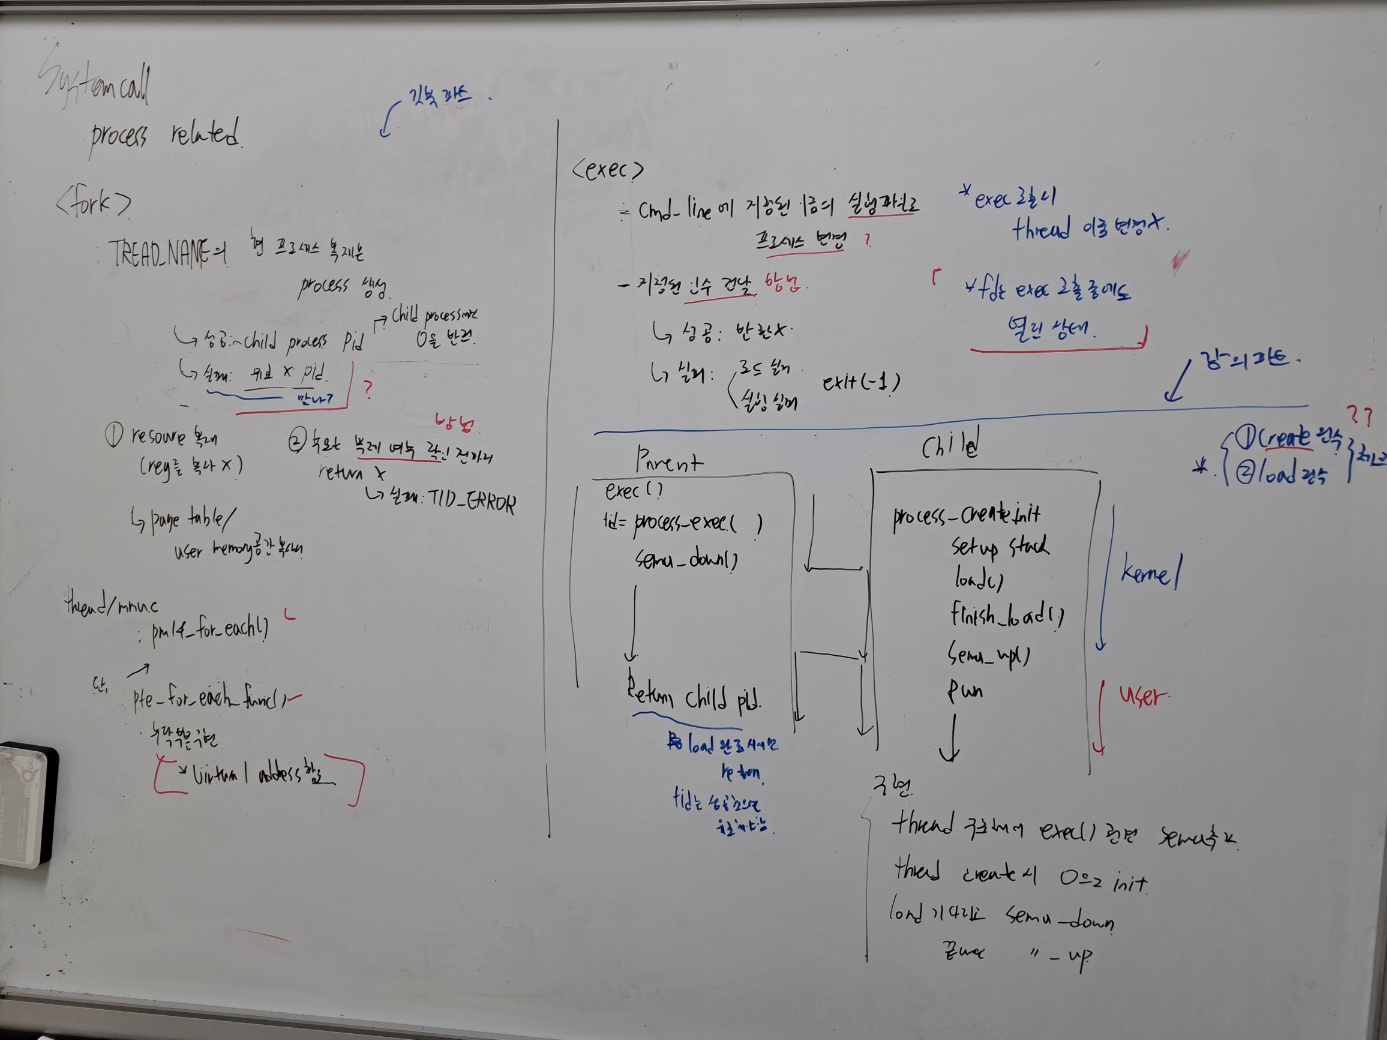 System call
process related.
깃북 파트.
<fork>
TREAD_NANE의 현 프로세스 복제본
process 생성
↳ 성공:~child process pid
↱ child process에선
0을 반환.
↳ 실패: 유효 X pid.
맞나?
?
① resoure 복제
(reg를 복사 X)
↳ page table/
user memory공간 복사
방법
② 부모는 복제 여부 확인 전까지
return X
↳ 실패: TID_ERROR
thread/mmuc
: pml4_for_each()
단,
pte_for_each_func()
누락부분 구현
* Virtual address 활용
<exec>
= Cmd_line에 지정된 이름의 실행파일로
프로세스 변경 ?
- 지정된 인수 전달 방법
↳ 성공: 반환X.
↳ 실패: 로드 실패
실행 실패
exit(-1)
* exec 호출시
thread 이름 변경X.
* fd는 exec 호출 중에도
열린 상태.
강의파트.
Parent
exec()
tid= process_exec( )
sema_down()
Return child pid.
load 완료시에만
return
tid는 성공적으로
Child
process_create_init
setup stack
load()
finish_load()
sema_up()
run
kernel
user
??
* ① Create 함수
② load 함수
체크
구현
thread 구조체에 exec() 관련 sema추가
thread create시 0으로 init
load 기다리고 sema_down
끝나면 〃 _up